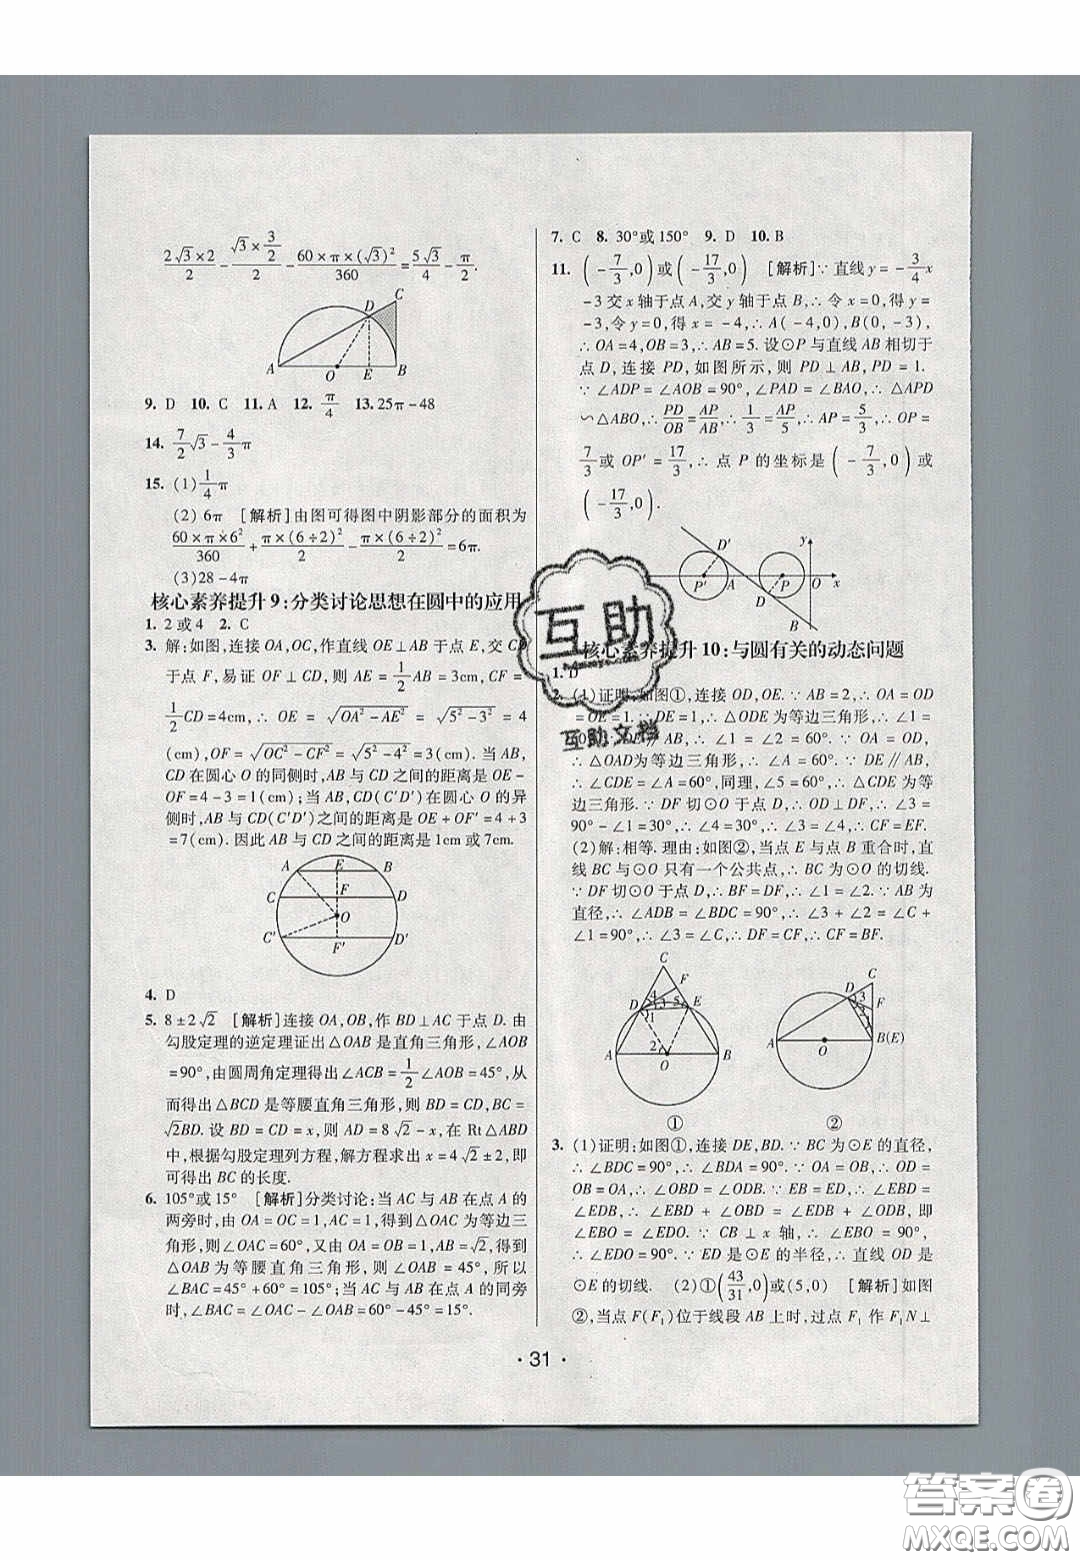 2√3×2/2 − √3×3/2/2 − 60×π×(√3)²/360 = 5√3/4 − π/2.
C
D
A O E B
9. D 10. C 11. A 12. π/4 13. 25π−48
14. 7/2√3−4/3π
15. (1)1/4π
(2) 6π [解析]由图可得图中阴影部分的面积为
60×π×6²/360+π×(6÷2)²/2−π×(6÷2)²/2=6π.
(3)28−4π
核心素养提升9:分类讨论思想在圆中的应用
1. 2或4 2. C
3. 解:如图,连接OA,OC,作直线OE⊥AB于点E,交CD
于点F,易证OF⊥CD,则AE=1/2AB=3cm,CF=
1/2CD=4cm,∴OE=√(OA²−AE²)=√(5²−3²)=4
(cm),OF=√(OC²−CF²)=√(5²−4²)=3(cm).当AB,
CD在圆心O的同侧时,AB与CD之间的距离是OE−
OF=4−3=1(cm);当AB,CD(C′D′)在圆心O的异
侧时,AB与CD(C′D′)之间的距离是OE+OF′=4+3
=7(cm).因此AB与CD之间的距离是1cm或7cm.
A E B
C F D
O
C′ F′ D′
4. D
5. 8±2√2 [解析]连接OA,OB,作BD⊥AC于点D.由
勾股定理的逆定理证出△OAB是直角三角形,∠AOB
=90°,由圆周角定理得出∠ACB=1/2∠AOB=45°,从
而得出△BCD是等腰直角三角形,则BD=CD,BC=
√2BD.设BD=x,则AD=8√2−x,在Rt△ABD
中,根据勾股定理列方程,解方程求出x=4√2±2,即
可得出BC的长度.
6. 105°或15° [解析]分类讨论:当AC与AB在点A的
两旁时,由OA=OC=1,AC=1,得到△OAC为等边三
角形,则∠OAC=60°,又由OA=OB=1,AB=√2,得到
△OAB为等腰直角三角形,则∠OAB=45°,所以
∠BAC=45°+60°=105°;当AC与AB在点A的同旁
时,∠BAC=∠OAC−∠OAB=60°−45°=15°.
7. C 8. 30°或150° 9. D 10. B
11. (−7/3,0)或(−17/3,0) [解析]∵直线y=−3/4x
−3交x轴于点A,交y轴于点B,∴令x=0,得y=
−3,令y=0,得x=−4,∴A(−4,0),B(0,−3),
∴OA=4,OB=3,∴AB=5.设⊙P与直线AB相切于
点D,连接PD,如图所示,则PD⊥AB,PD=1.
∵∠ADP=∠AOB=90°,∠PAD=∠BAO,∴△APD
∽△ABO,∴PD/OB=AP/AB,∴1/3=AP/5,∴AP=5/3,∴OP=
7/3或OP′=17/3,∴点P的坐标是(−7/3,0)或
(−17/3,0).
D′ y
P′ A P O x
D
B
核心素养提升10:与圆有关的动态问题
1. D
2. (1)证明:如图①,连接OD,OE.∵AB=2,∴OA=OD
=OE=1.∵DE=1,∴△ODE为等边三角形,∴∠1=
60°.∵DE∥AB,∴∠2=∠1=60°.∵OA=OD,
∴△OAD为等边三角形,∴∠A=60°.∵DE∥AB,
∴∠CDE=∠A=60°,同理,∠5=60°,∴△CDE为等
边三角形.∵DF切⊙O于点D,∴OD⊥DF,∴∠3=
90°−∠1=30°,∴∠4=30°,∴∠3=∠4,∴CF=EF.
(2)解:相等.理由:如图②,当点E与点B重合时,直
线BC与⊙O只有一个公共点,∴BC是⊙O的切线.
∵DF切⊙O于点D,∴BF=DF,∴∠1=∠2.∵AB为
直径,∴∠ADB=∠BDC=90°,∴∠1+∠3=∠2+∠C
=90°,∴∠3=∠C,∴DF=CF,∴CF=BF.
C F D 4 3 5 E 1 2 A O B
①
C D 3 F A O B(E)
②
3. (1)证明:如图①,连接DE,BD.∵BC为⊙E的直径,
∴∠BDC=90°,∴∠BDA=90°.∵OA=OB,∴OD=
OB=OA,∴∠OBD=∠ODB.∵EB=ED,∴∠EBD=
∠EDB,∴∠EBD+∠OBD=∠EDB+∠ODB,即
∠EBO=∠EDO.∵CB⊥x轴,∴∠EBO=90°,
∴∠EDO=90°.∵ED是⊙E的半径,∴直线OD是
⊙E的切线. (2)①(43/31,0)或(5,0) [解析]如图
②,当点F(F₁)位于线段AB上时,过点F₁作F₁N⊥
· 31 ·
互助
互助文档
答案圈
MXQE.COM